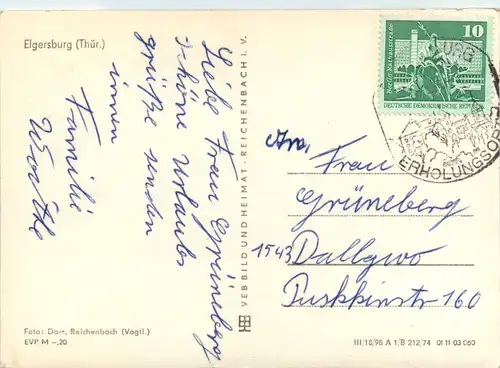 Elgersburg (Thür.)
Liebe Frau Grüneberg
schöne Urlaubs
grüße senden
ihnen
Familie
VEB BILD UND HEIMAT · REICHENBACH I. V.
10
Berlin, Rathausstraße
DEUTSCHE DEMOKRATISCHE REPUBLIK
BURG
ERHOLUNGSO
An,
Frau
Grüneberg
1543 Dallgwo
Puskkinstr 160
Foto: Darr, Reichenbach (Vogtl.)
EVP M –,20
III/18/96 A 1/B 212/74 01 11 03 060